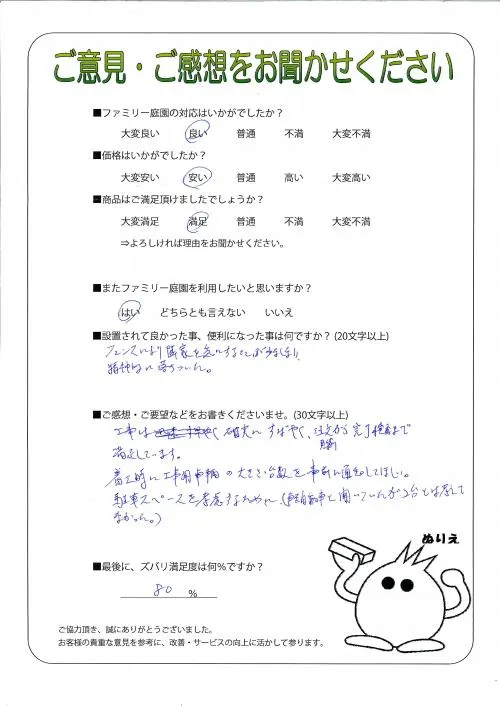 ご意見・ご感想をお聞かせください
■ファミリー庭園の対応はいかがでしたか？
大変良い 良い 普通 不満 大変不満
■価格はいかがでしたか？
大変安い 安い 普通 高い 大変高い
■商品はご満足頂けましたでしょうか？
大変満足 満足 普通 不満 大変不満
⇒よろしければ理由をお聞かせください。
■またファミリー庭園を利用したいと思いますか？
はい どちらとも言えない いいえ
■設置されて良かった事、便利になった事は何ですか？(20文字以上)
フェンスにより隣家を気にすることが少なくなり
精神的に落ちついた。
■ご感想・ご要望などをお書きくださいませ。(30文字以上)
工事は 確実にすばやく、注文から完了検査まで
満足しています。
着工時に工事用車輌の大きさ台数を事前に通知してほしい。
駐車スペースを考慮するために(軽自動車と聞いていたが2台とは思って
なかった。)
ぬりえ
■最後に、ズバリ満足度は何％ですか？
80 ％
ご協力頂き、誠にありがとうございました。
お客様の貴重な意見を参考に、改善・サービスの向上に活かして参ります。